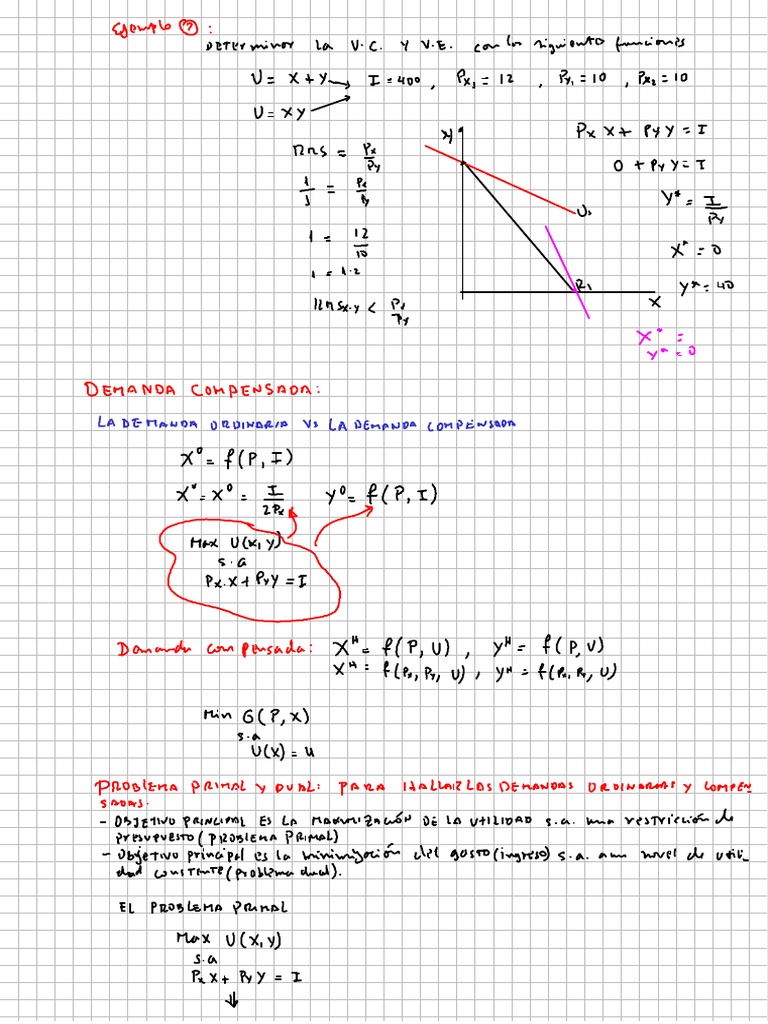 Ejemplo ②:
Determinar la V.C. y V.E. con los siguiente funciones
U = X + Y → I = 400, Px₁ = 12, Py₁ = 10, Px₂ = 10
U = XY
RMS = Px/Py
1/1 = Px/Py
1 = 12/10
1 = 1.2
RMSx,y < Px/Py
Y
U₁
R₁
X
Px X + Py Y = I
0 + Py Y = I
Y* = I/Py
X* = 0
Y* = 40
X* =
Y* = 0
DEMANDA COMPENSADA:
LA DEMANDA ORDINARIA VS LA DEMANDA COMPENSADA
X⁰ = f(P, I)
X* = X⁰ = I/2Px Y⁰ = f(P, I)
Max U(x, y)
s.a
Px.X + Py Y = I
Demanda compensada: Xᴴ = f(P, U), Yᴴ = f(P, U)
Xᴴ = f(Px, Py, U), Yᴴ = f(Px, Py, U)
Min G(P, X)
s.a
U(X) = u
PROBLEMA PRIMAL Y DUAL: PARA HALLAR LAS DEMANDAS ORDINARIAS Y COMPEN
SADAS.
- OBJETIVO PRINCIPAL ES LA MAXIMIZACIÓN DE LA UTILIDAD s.a. una restricción de
PRESUPUESTO (PROBLEMA PRIMAL)
- Objetivo principal es la minimización del gasto (ingreso) s.a. a un nivel de utili-
dad constante (problema dual).
EL PROBLEMA PRIMAL
Max U(X, Y)
s.a
Px X + Py Y = I